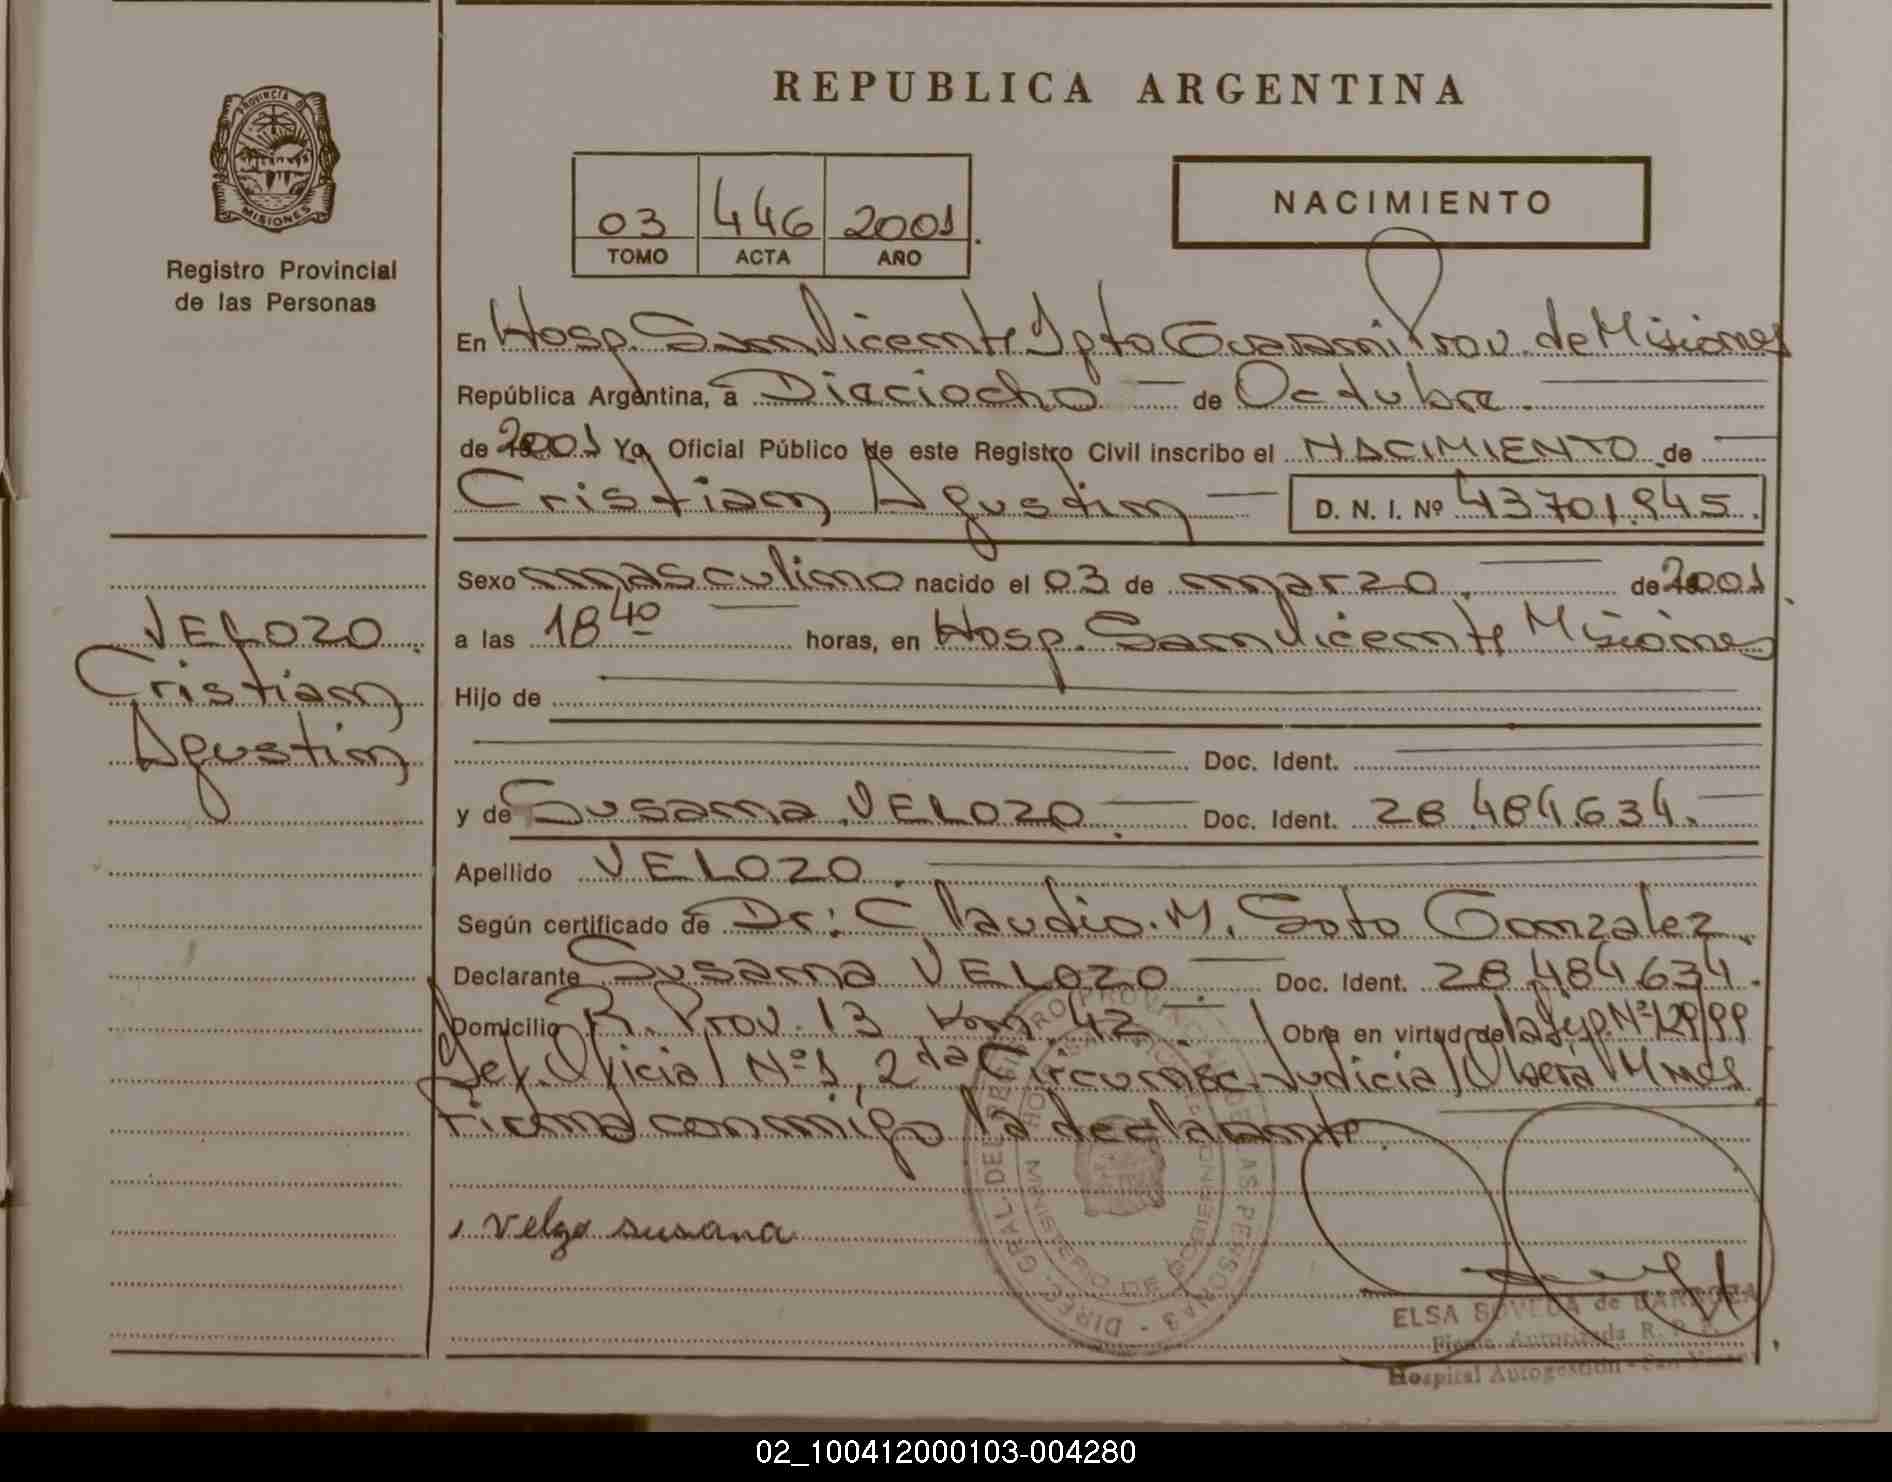 REPUBLICA ARGENTINA
PROVINCIA DE
MISIONES
Registro Provincial
de las Personas
03 446 2001
TOMO ACTA AÑO
NACIMIENTO
En Hosp. San Vicente Dpto Guarani Prov. de Misiones
República Argentina, a Dieciocho de Octubre
de 2001 Yo, Oficial Público de este Registro Civil inscribo el NACIMIENTO de
Cristian Agustin D. N. I. Nº 43.701.945.
Sexo masculino nacido el 03 de marzo de 2001
a las 18 40 horas, en Hosp. San Vicente Misiones
Hijo de
Doc. Ident.
y de Susana VELOZO. Doc. Ident. 28.484.634.
Apellido VELOZO.
Según certificado de Dr: Claudio. M. Soto Gonzalez.
Declarante Susana VELOZO. Doc. Ident. 28.484.634.
Domicilio R. Prov. 13 Km. 42. Obra en virtud de
Def. Oficial Nº 1, 2da Circunsc. Judicial Oberá Mnes
Firma conmigo la declarante.
VELOZO.
Cristian
Agustin
susana
ELSA BOVEDA de BARBOZA
Firma Autorizada R. P. P.
Hospital Autogestión - San Vicente
DIREC. GRAL. DEL REGISTRO PROVINCIAL DE LAS PERSONAS
MINISTERIO DE GOBIERNO
02_100412000103-004280